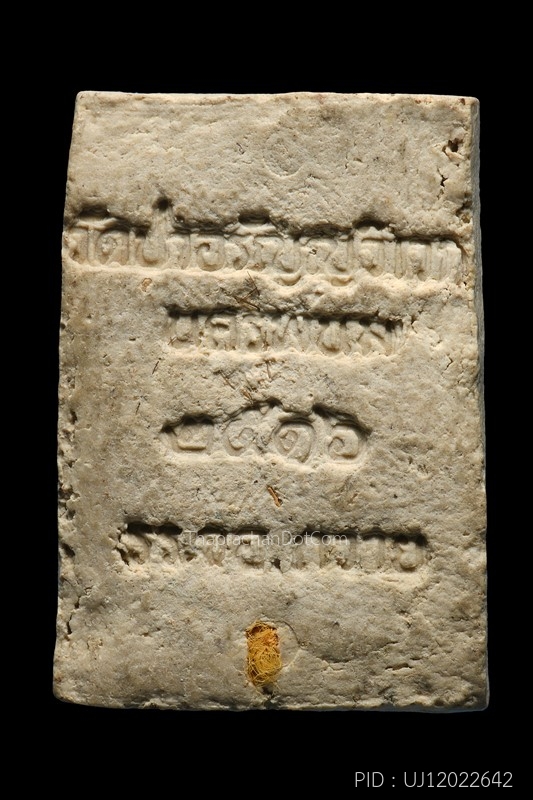 วัดป่าอรัญญวิเวก
นครพนม
๒๕๑๖
TaaprachanDotCom
PID : UJ12022642